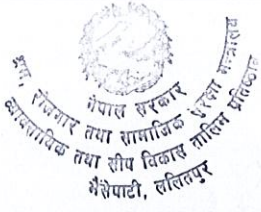 नेपाल सरकार
श्रम, रोजगार तथा सामाजिक सुरक्षा मन्त्रालय
व्यावसायिक तथा सीप विकास तालिम प्रतिष्ठान
भैसेपाटी, ललितपुर